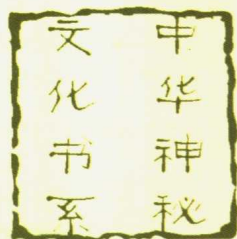 中华神秘
文化书系